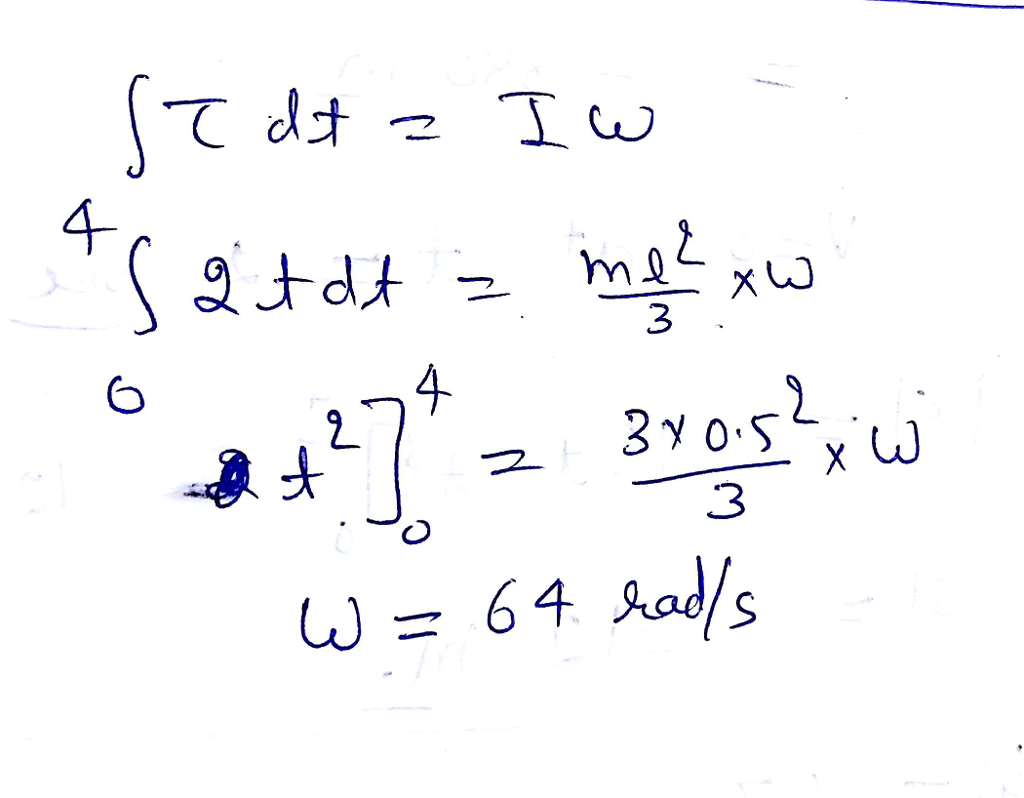 ∫ τ dt = I ω
⁴∫₀ 2t dt = ml²/3 × ω
t²]⁴₀ = 3×0.5²/3 × ω
ω = 64 rad/s